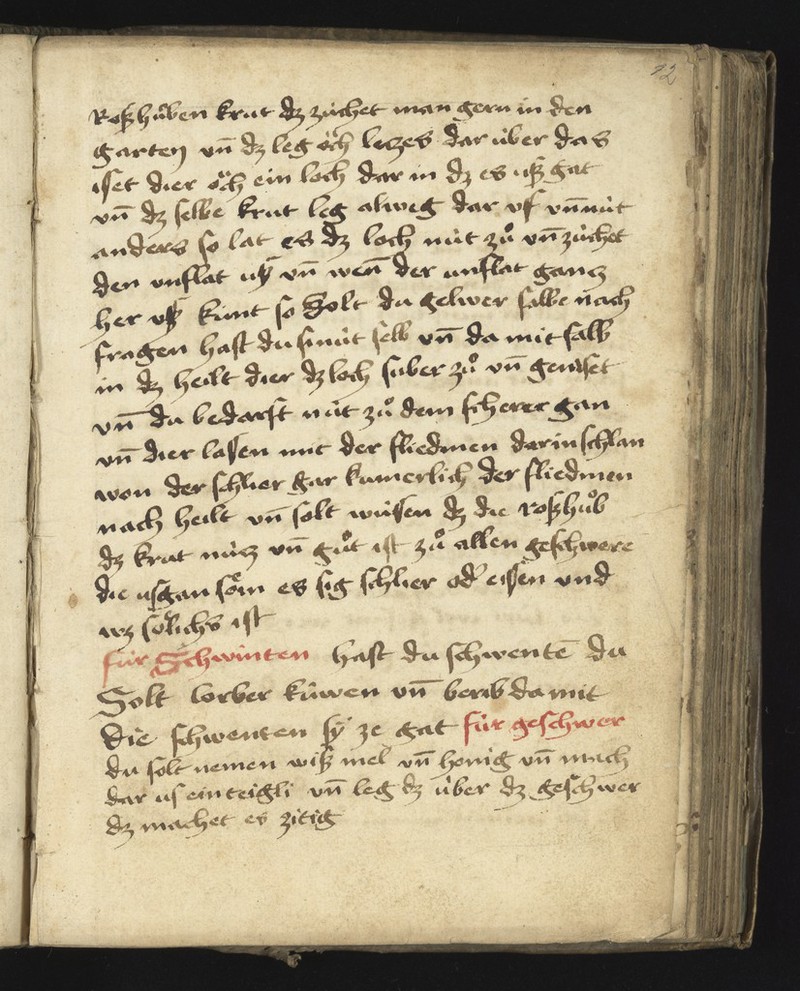 92
Roßhůben krut dz zúchet man gern in den
garten vn̄ dz leg öch letzes dar úber das
iset dier öch ein loch dar in dz es uß gat
vn̄ dz selbe krut leg alweg dar vf vn̄ nút
anders so lat es dz loch nút zů vn̄ zúchet
den vnflat uß vn̄ wen̄ der unflat gantz
her vß kúnt so Solt du gelwer salbe nach
fragen hast du si nút selb vn̄ da mit salb
in dz heilt dier dz loch suber zů vn̄ geniset
vn̄ du bedarft nút zů dem scherer gan
vn̄ dier lassen mit der fliedmen darin schlan
won der schlier gar kumerlich der fliedmen
nach heilt vn̄ solt wússen dz die roßhůb
dz krut nútz vn̄ gůt ist zů allen geschwere
die usgan söin es sig schlier od' eissen vnd
wz sölichs ist
für Schwinten hast du schwentē du
Solt lorber kúwen vn̄ berib da mit
die schwenten sÿ ze gat für geschwer
du solt nemen wiß mel vn̄ honig vn̄ mach
dar us ein teigli vn̄ leg dz úber dz geschwer
dz machet es zitig